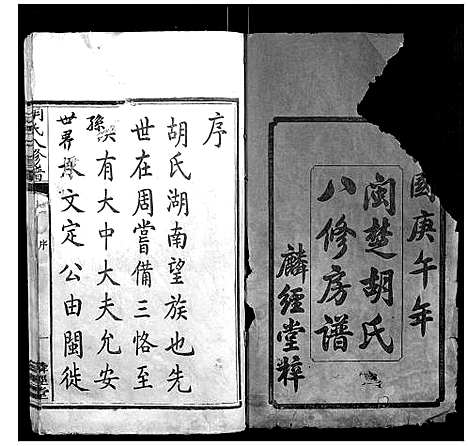 國庚午年
閩楚胡氏
八修房譜
麟經堂粹
序
胡氏湖南望族也先
世在周嘗備三恪至
有大中大夫允安
孫
世界
文定公由閩徙
氏八修譜
序
一